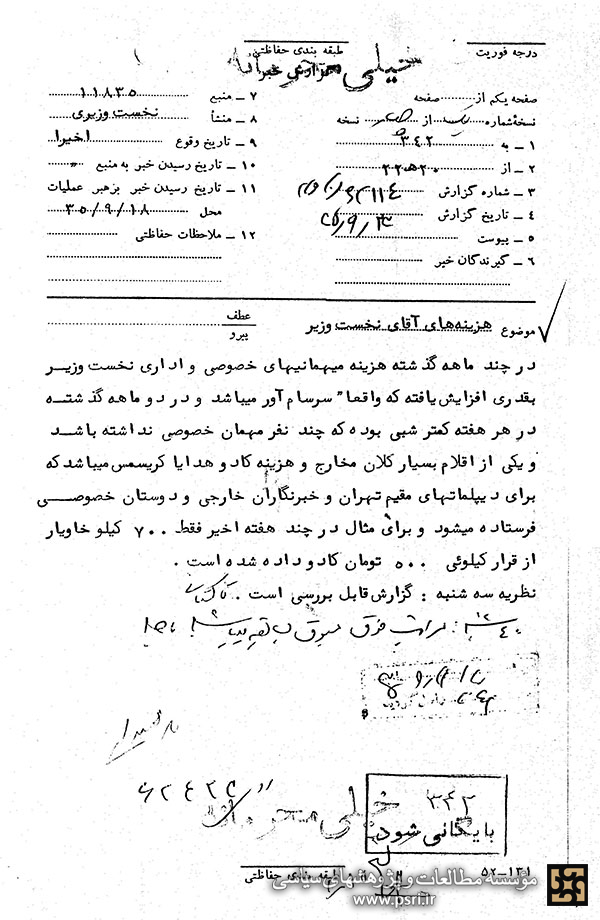 درجه فوریت
طبقه بندی حفاظتی
خیلی محرمانه
گزارش خبر
صفحه یکم از صفحه
نسخهٔ شماره یک از نسخه
۱ – به ۳۴۲
۲ – از ۲۲ه۲۰
۳ – شماره گزارش
۴ – تاریخ گزارش
۵ – پیوست
۶ – گیرندگان خبر
۷ – منبع ۱۱۸۳۵
۸ – منشأ نخست وزیری
۹ – تاریخ وقوع اخیرا
۱۰ – تاریخ رسیدن خبر به منبع
۱۱ – تاریخ رسیدن خبر برهبر عملیات
محل ۳۵/۹/۱۸
۱۲ – ملاحظات حفاظتی
موضوع هزینه‌های آقای نخست وزیر
عطف
پیرو
در چند ماهه گذشته هزینه میهمانیهای خصوصی و اداری نخست وزیر
بقدری افزایش یافته که واقعا" سرسام آور میباشد و در دو ماهه گذشته
در هر هفته کمتر شبی بوده که چند نفر مهمان خصوصی نداشته باشد
و یکی از اقلام بسیار کلان مخارج و هزینه کادو و هدایا کریسمس میباشد که
برای دیپلماتهای مقیم تهران و خبرنگاران خارجی و دوستان خصوصی
فرستاده میشود و برای مثال در چند هفته اخیر فقط ۷۰۰ کیلو خاویار
از قرار کیلوئی ۵۰۰ تومان کادو داده شده است .
نظریه سه شنبه : گزارش قابل بررسی است .
۳۴۲
بایگانی شود
خیلی محرمانه
طبقه بندی حفاظتی
۵۲–۱۳۱
مؤسسه مطالعات و پژوهشهای سیاسی
www.psri.ir